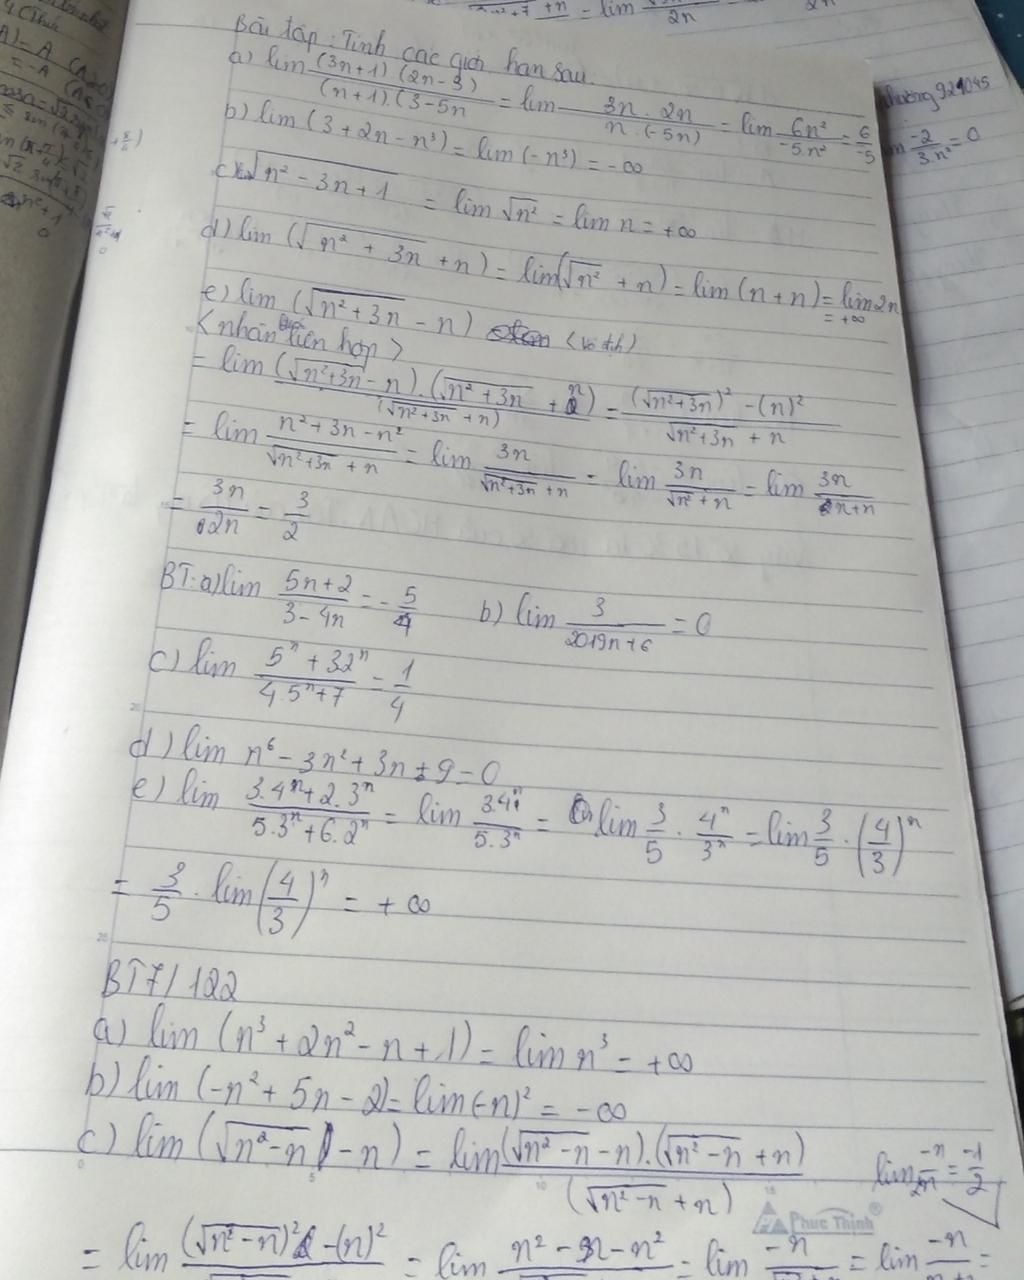 Bài tập: Tính các giới hạn sau.
a) lim (3n+1).(2n-3) / (n+1).(3-5n = lim 3n.2n / n.(-5n) = lim 6n² / -5n² = 6/-5
b) lim (3+2n-n³) = lim (-n³) = -∞
c) √n²-3n+1 = lim √n² = lim n = +∞
d) lim (√n²+3n + n) = lim(√n² + n) = lim (n+n) = lim 2n
= +∞
e) lim (√n²+3n - n) (vô định)
<nhân liên hợp>
= lim (√n²+3n - n).(√n²+3n + n) / (√n²+3n + n) = (√n²+3n)² - (n)² / √n²+3n + n
= lim n²+3n-n² / √n²+3n + n = lim 3n / √n²+3n + n = lim 3n / √n² + n = lim 3n / n+n
= 3n / 2n = 3/2
BT: a) lim 5n+2 / 3-4n = -5/4 b) lim 3 / 2019n+6 = 0
c) lim 5ⁿ+32ⁿ / 4.5ⁿ+7 = 1/4
d) lim n⁶-3n²+3n+9 = 0
e) lim 3.4ⁿ+2.3ⁿ / 5.3ⁿ+6.2ⁿ = lim 3.4ⁿ / 5.3ⁿ = lim 3/5 . 4ⁿ/3ⁿ = lim 3/5 . (4/3)ⁿ
= 3/5 . lim (4/3)ⁿ = +∞
BT7/122
a) lim (n³+2n²-n+1) = lim n³ = +∞
b) lim (-n²+5n-2) = lim(-n)² = -∞
c) lim (√n²-n - n) = lim (√n²-n - n).(√n²-n + n) / (√n²-n + n)
lim -n / 2n = -1/2
Phuc Thinh®
= lim (√n²-n)² - (n)² = lim n²-n-n² = lim -n = lim -n =
-2 / 3n² = 0